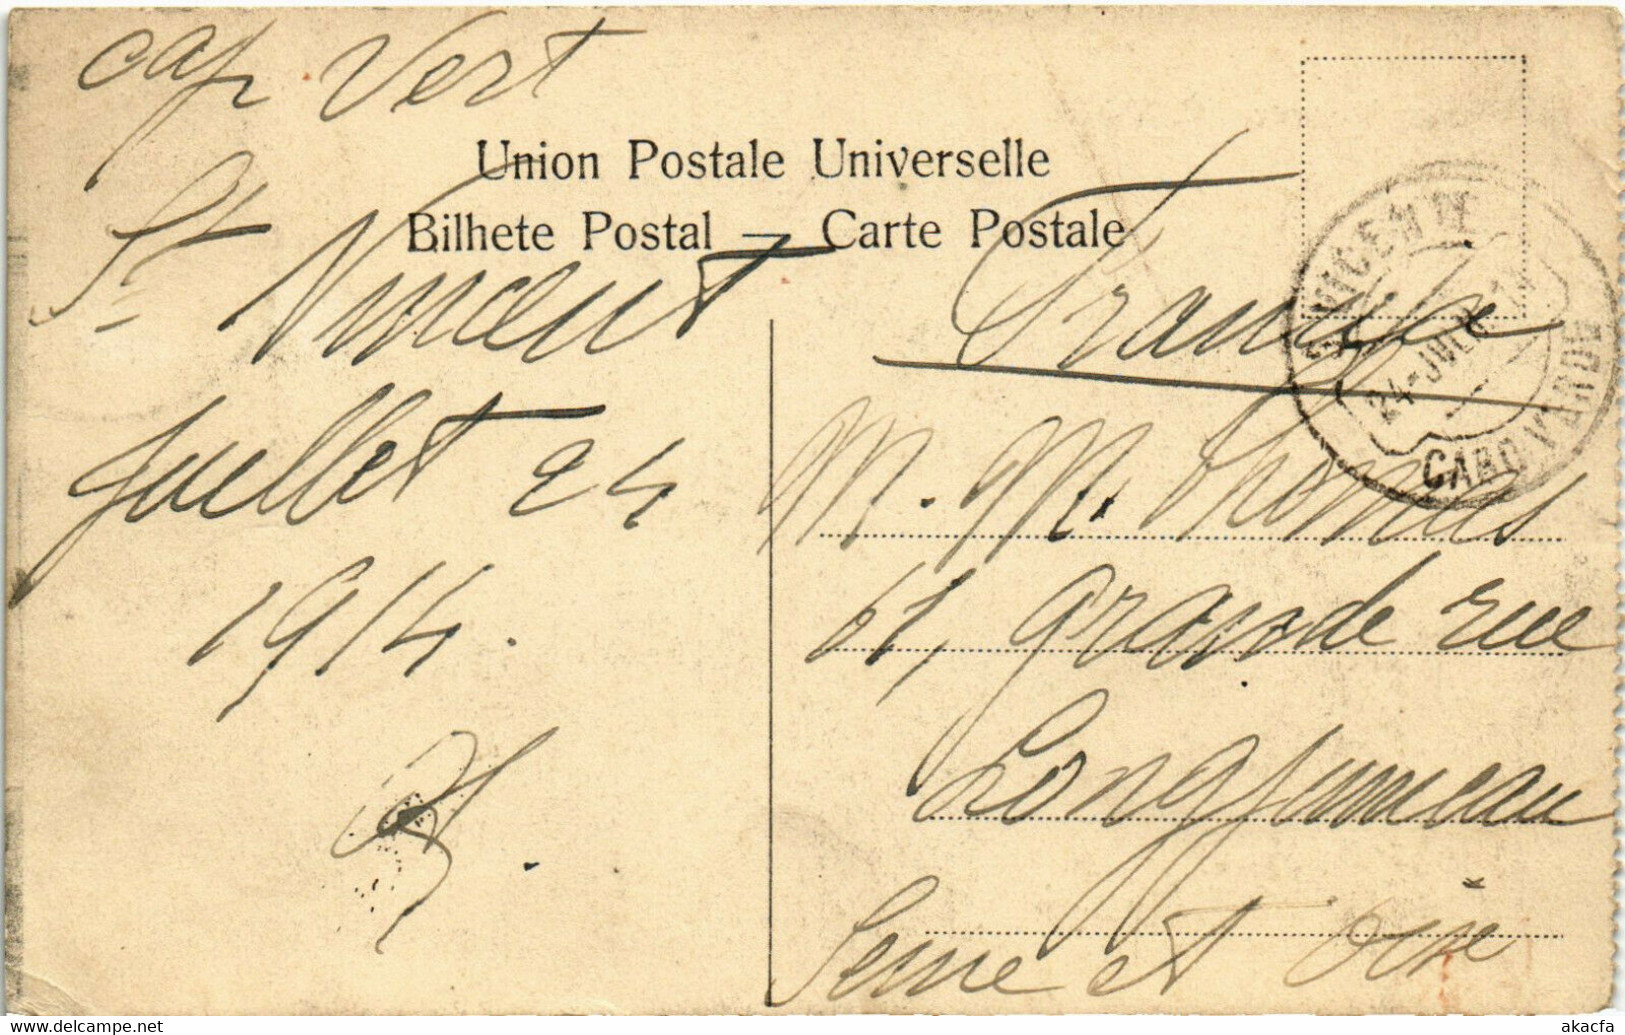 Cap Vert
Union Postale Universelle
Bilhete Postal — Carte Postale
St Vincent
Juillet 24
1914.
France
M. M. Thomas
61, grande rue
Longjumeau
Seine et Oise
S. VICENTE
24-JUL
CABO VERDE
www.delcampe.net
akacfa